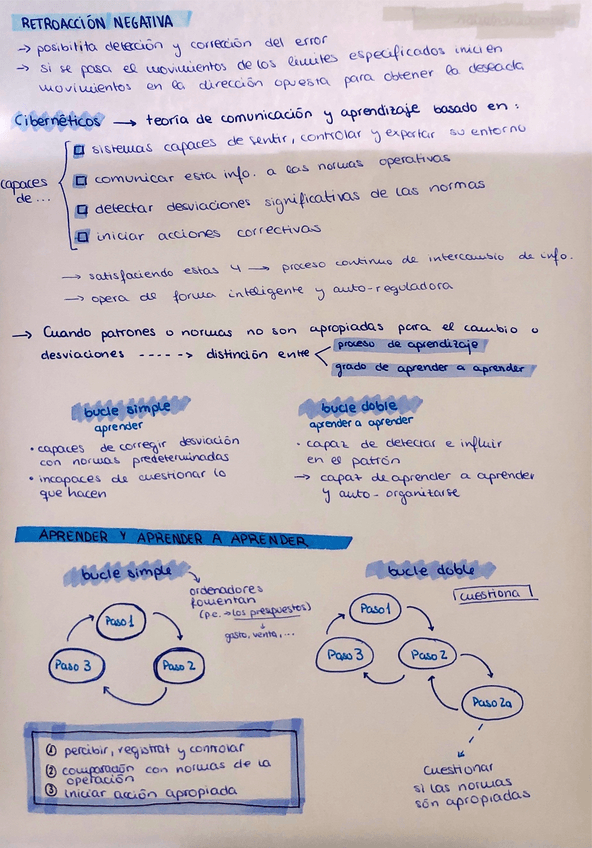 RETROACCIÓN NEGATIVA
→ posibilita detección y corrección del error
→ si se pasa el movimientos de los límites especificados inicien
movimientos en la dirección opuesta para obtener la deseada
Cibernéticos → teoría de comunicación y aprendizaje basado en:
capaces de...
sistemas capaces de sentir, controlar y exportar su entorno
comunicar esta info. a las normas operativas
detectar desviaciones significativas de las normas
iniciar acciones correctivas
→ satisfaciendo estas 4 → proceso continuo de intercambio de info.
→ opera de forma inteligente y auto-reguladora
→ Cuando patrones o normas no son apropiadas para el cambio o
desviaciones -----> distinción entre
proceso de aprendizaje
grado de aprender a aprender
bucle simple
aprender
• capaces de corregir desviación
con normas predeterminadas
• incapaces de cuestionar lo
que hacen
bucle doble
aprender a aprender
• capaz de detectar e influir
en el patrón
→ capaz de aprender a aprender
y auto-organizarse
APRENDER Y APRENDER A APRENDER
bucle simple
ordenadores
fomentan
(p.e. → los presupuestos)
gasto, venta, ...
Paso 1
Paso 3
Paso 2
bucle doble
cuestiona
Paso 1
Paso 3
Paso 2
Paso 2a
cuestionar
si las normas
són apropiadas
① percibir, registrat y controlar
② comparación con normas de la
operación
③ iniciar acción apropiada